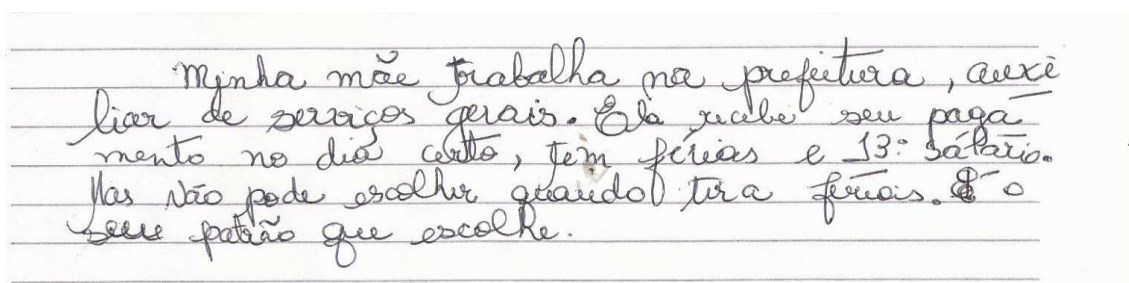 Minha mãe trabalha na prefeitura, auxi
liar de serviços gerais. Ela recebe seu paga
mento no dia certo, tem férias e 13º salário.
Mas Não pode escolher quando tira férias. É o
seu patrão que escolhe.